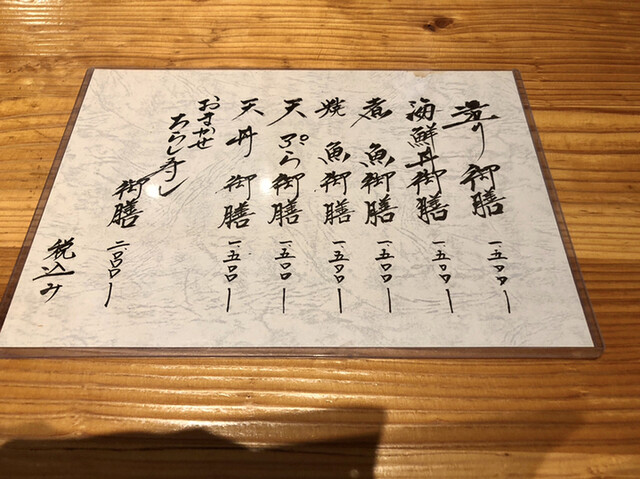 造り御膳 一.五〇〇ー
海鮮丼御膳 一.五〇〇ー
煮魚御膳 一.五〇〇ー
焼魚御膳 一.五〇〇ー
天ぷら御膳 一.五〇〇ー
天丼御膳 一.五〇〇ー
おまかせ
ちらし寿し
御膳 二.〇〇〇ー
税込み